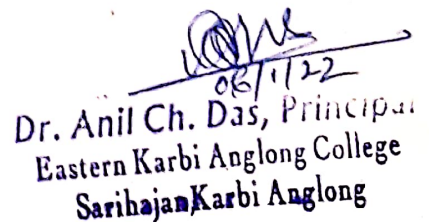 06/1/22
Dr. Anil Ch. Das, Principal
Eastern Karbi Anglong College
Sarihajan, Karbi Anglong